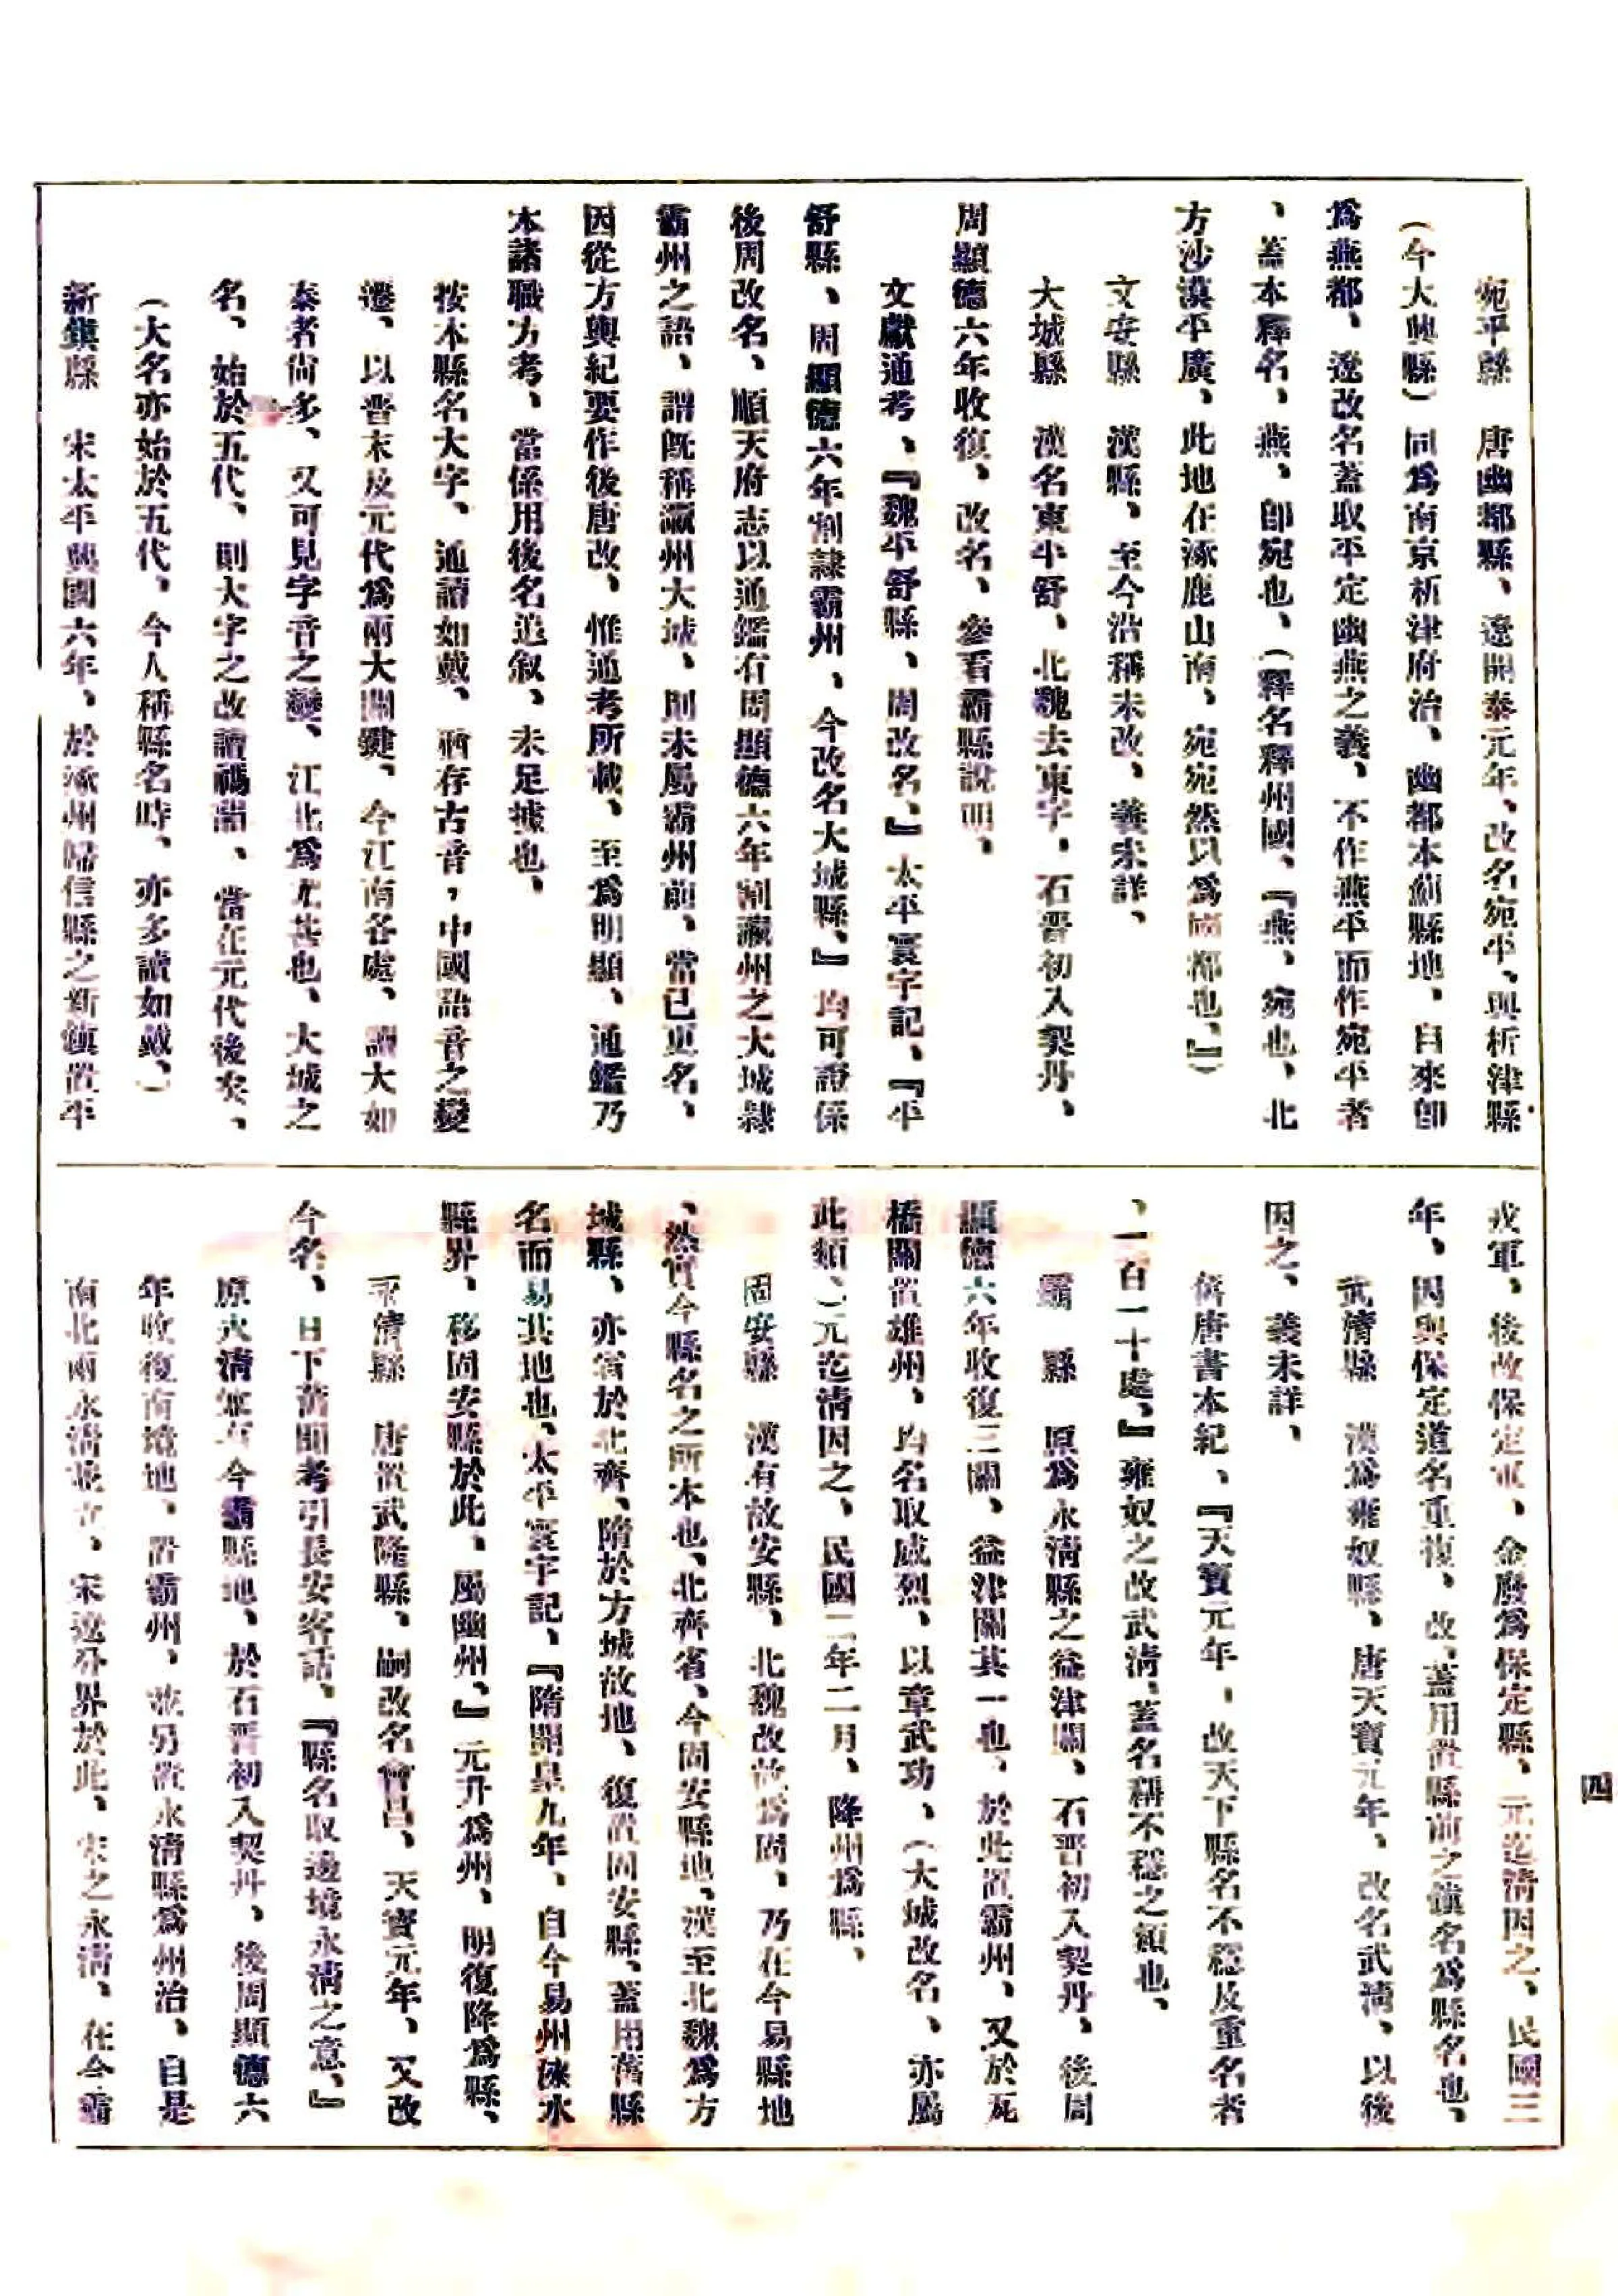 宛平縣　唐幽都縣、遼開泰元年、改名宛平、與析津縣
（今大興縣）同爲南京析津府治、幽都本薊縣地、自來卽
爲燕都、遼改名蓋取平定幽燕之義、不作燕平而作宛平者
、蓋本釋名、燕、卽宛也、（釋名釋州國、『燕、宛也、北
方沙漠平廣、此地在涿鹿山南、宛宛然以爲國都也、』）
文安縣　漢縣、至今沿稱未改、義未詳、
大城縣　漢名東平舒、北魏去東字、石晋初入契丹、
周顯德六年收復、改名、參看霸縣說明、
文獻通考、『魏平舒縣、周改名、』太平寰宇記、『平
舒縣、周顯德六年割隸霸州、今改名大城縣、』均可證係
後周改名、順天府志以通鑑有周顯德六年割瀛州之大城隸
霸州之語、謂旣稱瀛州大城、則未屬霸州前、當已更名、
因從方輿紀要作後唐改、惟通考所載、至爲明顯、通鑑乃
本諸職方考、當係用後名追叙、未足據也、
按本縣名大字、通讀如戴、猶存古音，中國語音之變
遷、以晋末及元代爲兩大關鍵、今江南各處、讀大如
泰者尙多、又可見字音之變、江北爲尤甚也、大城之
名、始於五代、則大字之改讀禡韻、當在元代後矣、
（大名亦始於五代、今人稱縣名時、亦多讀如戴、）
新鎭縣　宋太平興國六年、於涿州歸信縣之新鎭置平
戎軍、後改保定軍、金廢爲保定縣、元迄淸因之、民國三
年、因與保定道名重複、改、蓋用置縣前之鎭名爲縣名也、
武淸縣　漢爲雍奴縣、唐天寶元年、改名武淸、以後
因之、義未詳、
舊唐書本紀、『天寶元年，改天下縣名不穩及重名者
、一百一十處、』雍奴之改武淸、蓋名稱不穩之類也、
霸　縣　原爲永淸縣之益津關、石晋初入契丹、後周
顯德六年收復三關、益津關其一也、於此置霸州、又於瓦
橋關置雄州、均名取威烈、以章武功、（大城改名、亦屬
此類、）元迄淸因之、民國二年二月、降州爲縣、
固安縣　漢有故安縣、北魏改故爲固、乃在今易縣地
、然實今縣名之所本也、北齊省、今固安縣地、漢至北魏爲方
城縣、亦省於北齊、隋於方城故地、復置固安縣、蓋用舊縣
名而易其地也、太平寰宇記、『隋開皇九年、自今易州淶水
縣界、移固安縣於此、屬幽州、』元升爲州、明復降爲縣、
永淸縣　唐置武隆縣、嗣改名會昌、天寶元年、又改
今名、日下舊聞考引長安客話、『縣名取邊境永淸之意、』
原永淸寔有今霸縣地、於石晋初入契丹、後周顯德六
年收復南境地、置霸州、並另置永淸縣爲州治、自是
南北兩永淸並立、宋遼分界於此、宋之永淸、在今霸
四